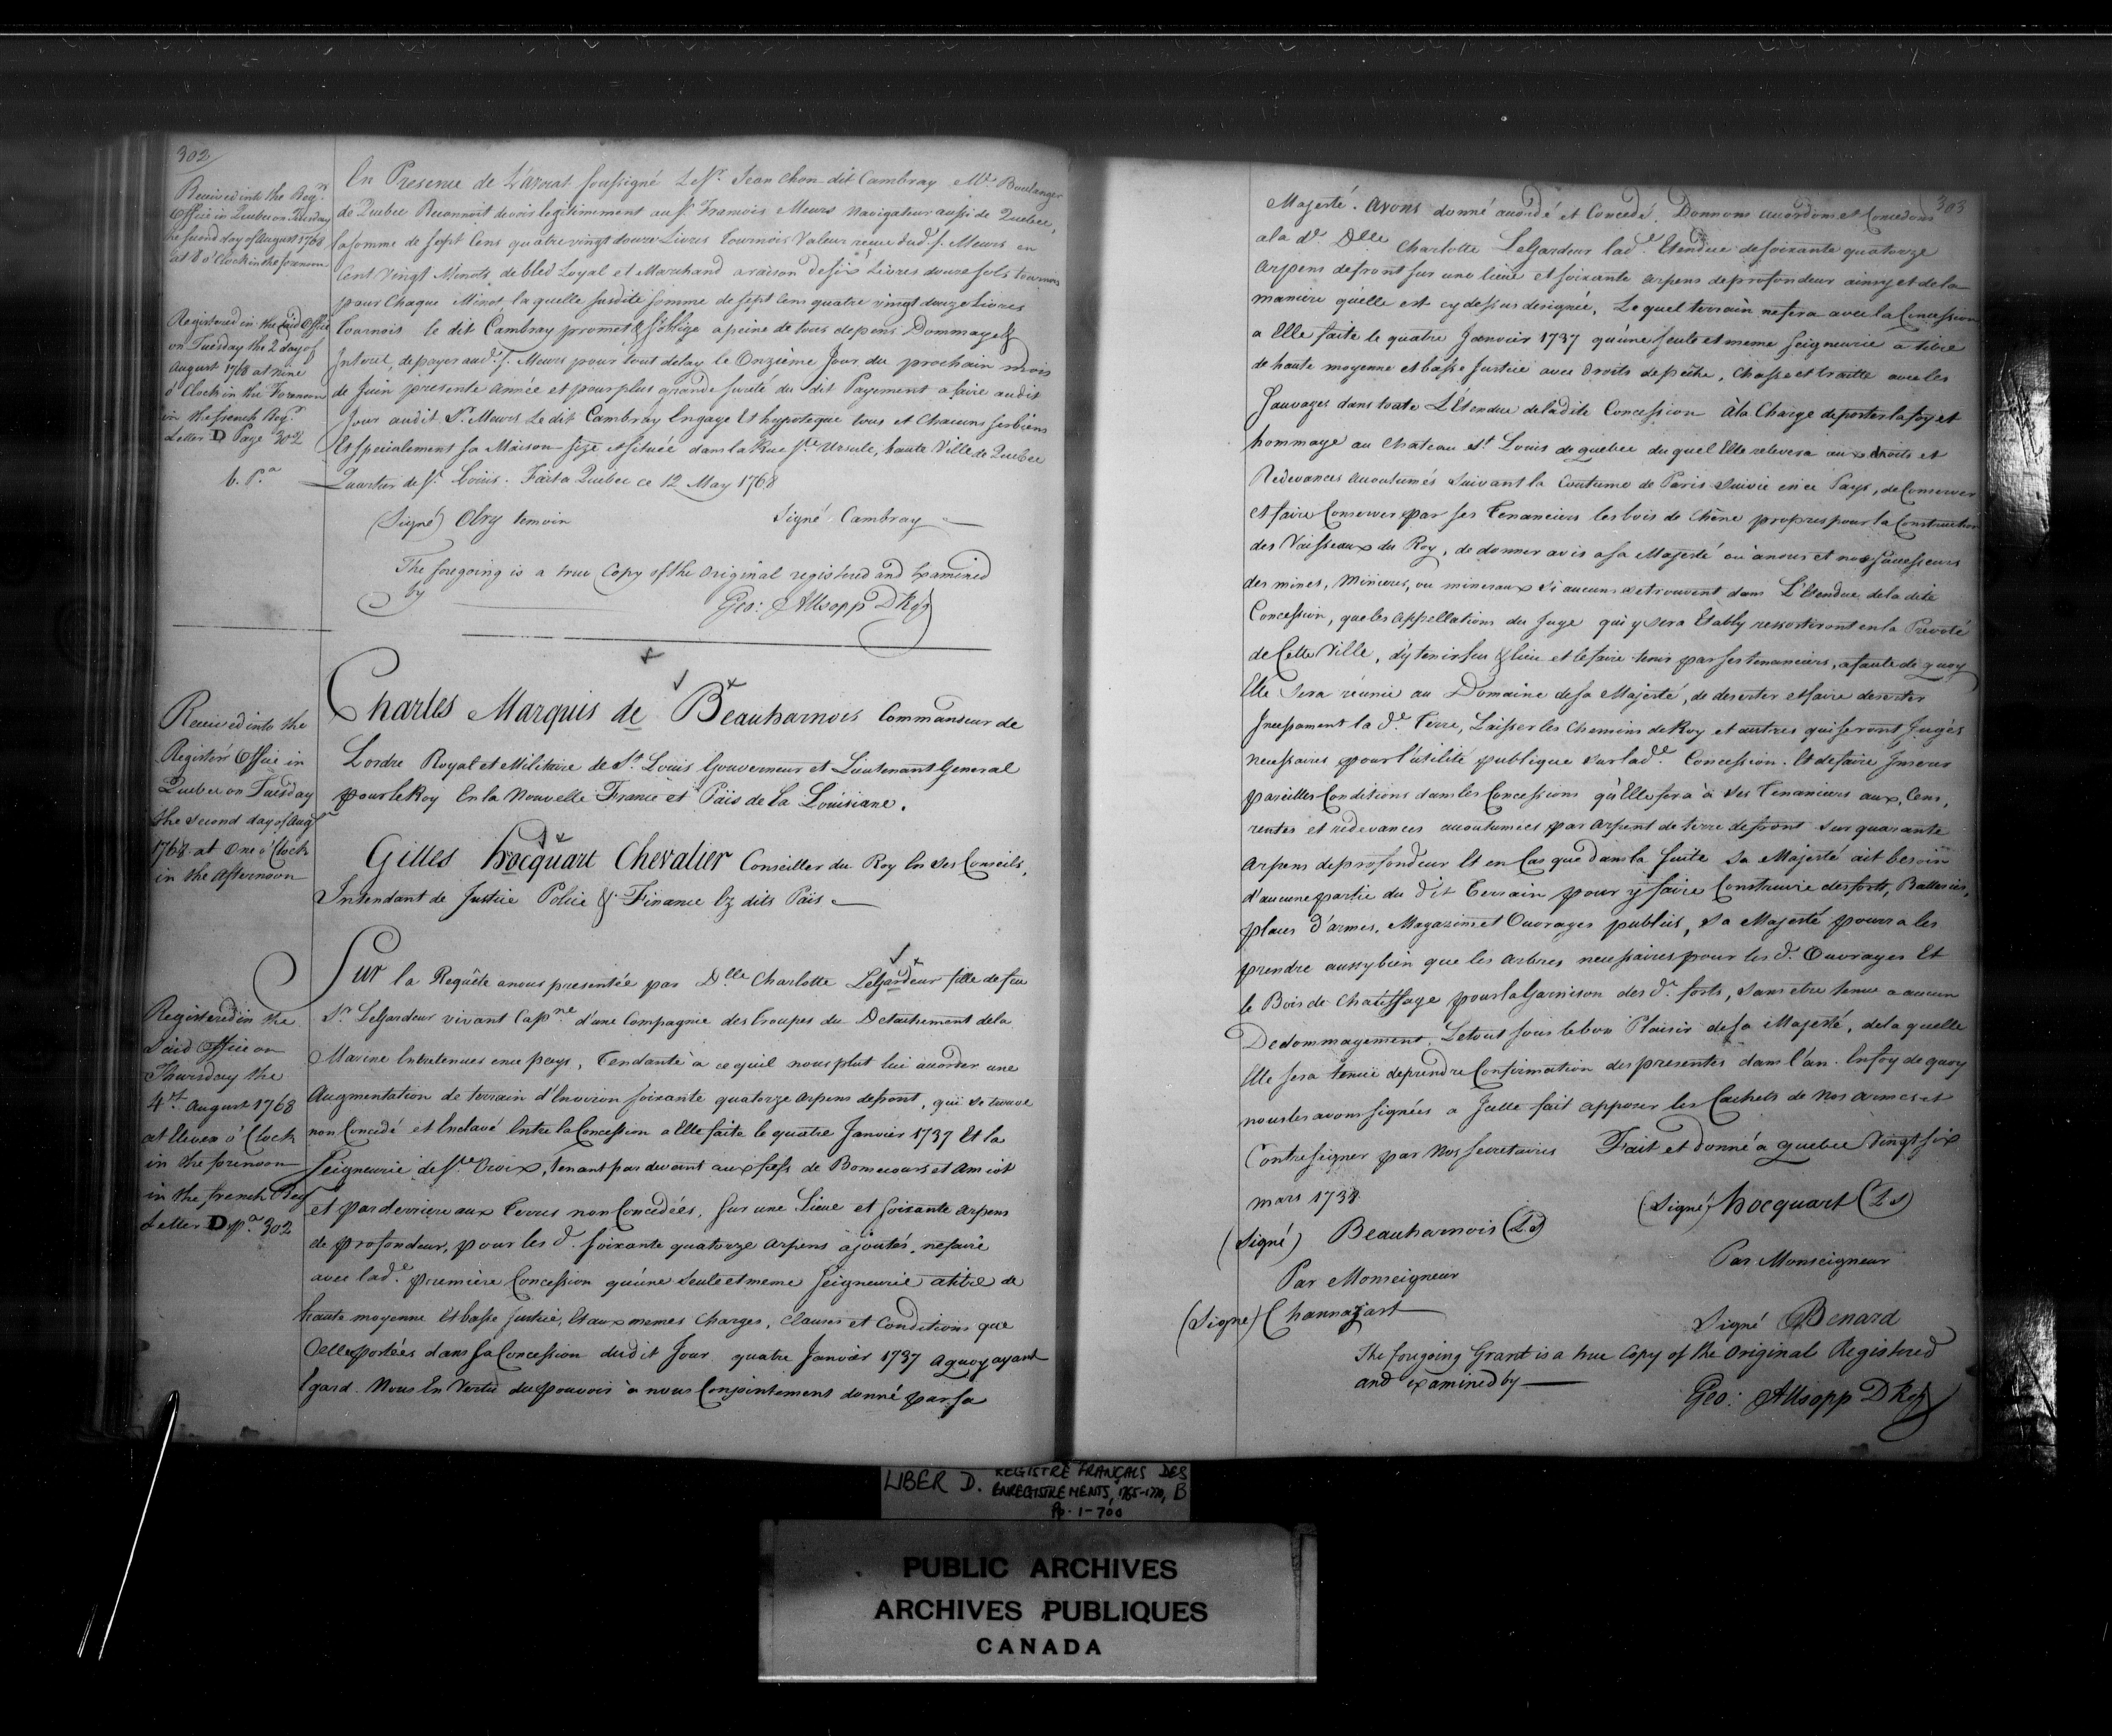 302
Received into the Regrs
Office in Quebec on Tuesday
the second day of August 1768
at 8 o'Clock in the forenoon
Registered in the said Office
on Tuesday the 2 day of
August 1768 at nine
o'Clock in the Forenoon
in the french Regr
Letter D Page 302
En Presence de L'avocat soussigné Le Sr. Jean Chon dit Cambray Me. Boulanger
de Quebec Reconnoit devoir legitimement au Sr. Francois Meurs Navigateur aussi de Quebec,
la somme de sept Cens quatre vingt douze Livres tournois Valeur reçue dud. S. Meurs en
Cent vingt Minots de bled Loyal et Marchand a raison de six Livres douze sols tournois
pour Chaque Minot laquelle susdite somme de sept Cens quatre vingt douze Livres
tournois le dit Cambray promet & s'oblige a peine de tous depens Dommages &
Interet, de payer aud. S. Meurs pour tout delay le Onzième Jour du prochain mois
de Juin presente Année et pour plus grande sureté du dit Payement a faire audit
Jour audit Sr. Meurs Le dit Cambray Engage Et hypoteque tous et Chacuns ses biens
Et specialement sa Maison size et située dans la Rue Ste Ursule, haute Ville de Quebec
Quartier de St. Louis. Fait a Quebec ce 12 May 1768
(Signé) Olry temoin Signé Cambray
The foregoing is a true Copy of the Original registered and Examined
by
Geo: Allsopp DRegr
Received into the
Registers Office in
Quebec on Tuesday
the second day of Augt
1768 at One o'Clock
in the Afternoon
Registered in the
said Office on
Thursday the
4th. August 1768
at Eleven o'Clock
in the forenoon
in the french Reg
Letter D pa. 302
Charles Marquis de Beauharnois Commandeur de
Lordre Royal et Militaire de St. Louis Gouverneur et Lieutenant General
pour le Roy En la Nouvelle France et Païs de la Louisiane.
Gilles hocquart Chevalier Conseiller du Roy En ses Conseils,
Intendant de Justice Police & Finance Ez dits Païs
Sur la Requête a nous presentée par Dlle Charlotte LeGardeur fille de feu
Sr. LeGardeur vivant Capne. d'une Compagnie des troupes du Detachement de la
Marine Entretenues en ce pays, Tendante à ce quil nous plut lui accorder une
Augmentation de terrain d'Environ soixante quatorze Arpens de front, qui se trouve
non Concedé et Enclavé Entre la Concession a Elle faite le quatre Janvier 1737 Et la
Seigneurie de Ste Croix, tenant par devant aux fiefs de Bonnecours et Amiot
et par derriere aux Terres non Concedées, sur une Lieue et soixante arpens
de profondeur, pour les d. soixante quatorze Arpens ajoutés, ne faire
avec lade. première Concession qu'une seule et meme Seigneurie a titre de
haute moyenne Et basse Justice, Et aux memes Charges, Clauses et Conditions que
Celles portées dans sa Concession dudit Jour quatre Janvier 1737 A quoy ayant
Egard. Nous En Vertu du pouvoir à nous Conjointement donné par sa
303
Majesté. Avons donné accordé et Concedé, Donnons accordons et Concedons
a la de. Dlle Charlotte LeGardeur lade. Etendue de soixante quatorze
Arpens de front sur une lieue et soixante arpens de profondeur ainsy et de la
maniere qu'elle est cy dessus designée, Lequel terrain ne fera avec la Concession
a Elle faite le quatre Janvier 1737 qu'une seule et meme seigneurie a titre
de haute moyenne et basse Justice avec droits de pêche, Chasse et traitte avec les
Sauvages dans toute L'Etendue de ladite Concession à la Charge de porter la foy et
hommage au Chateau St. Louis de quebec duquel Elle relevera aux droits et
Redevances accoutumés suivant la Coutume de Paris suivie en ce Pays, de Conserver
et faire Conserver par ses Tenanciers les bois de chêne propres pour la Construction
des Vaisseaux du Roy, de donner avis a sa Majesté ou a nous et nos successeurs
des mines, Minieres, ou mineraux si aucuns se trouvent dans L'Etendue de la dite
Concession, que les Appellations du Juge qui y sera Etably ressortiront en la Prevoté
de Cette Ville, d'y tenir feu & lieu et le faire tenir par ses tenanciers, a faute de quoy
Elle sera réunie au Domaine de sa Majesté, de deserter et faire deserter
Incessament la de. Terre, Laisser les Chemins de Roy et autres qui seront Jugés
necessaires pour l'utilité publique sur lade. Concession. Et de faire Inserer
pareilles Conditions dans les Concessions qu'Elle fera à ses Tenanciers aux, Cens,
rentes et redevances accoutumées par Arpent de terre de front sur quarante
Arpens de profondeur Et en Cas que dans la suite sa Majesté ait besoin
d'aucune partie du dit terrain pour y faire Construire des forts, Batteries,
places d'armes, Magazins et Ouvrages publics, sa Majesté pourra les
prendre aussy bien que les Arbres necessaires pour les d. Ouvrages Et
le Bois de Chauffage pour la Garnison des d. forts, sans etre tenue a aucun
Dedommagement, Le tout sous le bon Plaisir de sa Majesté, de laquelle
Elle sera tenue de prendre Confirmation des presentes dans l'an. En foy de quoy
nous les avons signées a Icelle fait apposer les Cachets de nos armes et
Contresigner par Nos secretaires Fait et donné a quebec vingt six
mars 1738
(Signé) hocquart (LS)
(Signé) Beauharnois (LS)
Par Monseigneur
Par Monseigneur
(Signé) Channazart
Signé Benard
The foregoing Grant is a true Copy of the Original Registered
and examined by
Geo: Allsopp DRegr
LIBER D. REGISTRE FRANÇAIS DES
ENREGISTREMENTS, 1765-1770, B
Pp. 1-700
PUBLIC ARCHIVES
ARCHIVES PUBLIQUES
CANADA